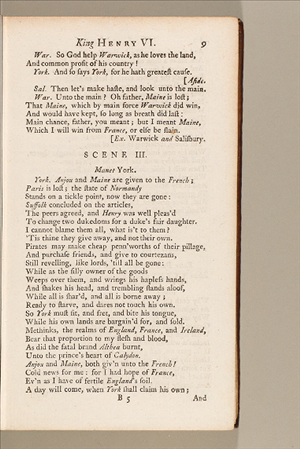 King HENRY VI. 9
War. So God help Warwick, as he loves the land,
And common profit of his country!
York. And so says York, for he hath greatest cause.
[Aside.
Sal. Then let's make haste, and look unto the main.
War. Unto the main? Oh father, Maine is lost;
That Maine, which by main force Warwick did win,
And would have kept, so long as breath did last:
Main chance, father, you meant; but I meant Maine,
Which I will win from France, or else be slain.
[Ex. Warwick and Salisbury.
SCENE III.
Manet York.
York. Anjou and Maine are given to the French;
Paris is lost; the state of Normandy
Stands on a tickle point, now they are gone:
Suffolk concluded on the articles,
The peers agreed, and Henry was well pleas'd
To change two dukedoms for a duke's fair daughter.
I cannot blame them all, what is't to them?
'Tis thine they give away, and not their own.
Pirates may make cheap pen'worths of their pillage,
And purchase friends, and give to courtezans,
Still revelling, like lords, 'till all be gone:
While as the silly owner of the goods
Weeps over them, and wrings his hapless hands,
And shakes his head, and trembling stands aloof,
While all is shar'd, and all is borne away;
Ready to starve, and dares not touch his own.
So York must sit, and fret, and bite his tongue,
While his own lands are bargain'd for, and sold.
Methinks, the realms of England, France, and Ireland,
Bear that proportion to my flesh and blood,
As did the fatal brand Althea burnt,
Unto the prince's heart of Calydon.
Anjou and Maine, both giv'n unto the French!
Cold news for me: for I had hope of France,
Ev'n as I have of fertile England's soil.
A day will come, when York shall claim his own;
B 5 And